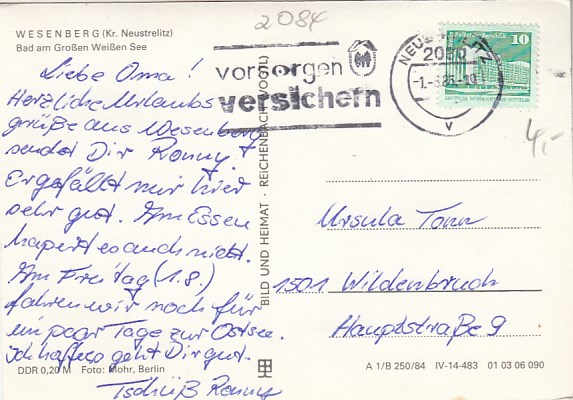 2084
WESENBERG (Kr. Neustrelitz)
Bad am Großen Weißen See
vorsorgen
versichern
NEUSTRELITZ
2080
10
v
4,-
Liebe Oma!
Herzliche Urlaubs
grüße aus Wesenberg
sendet Dir Ronny.
Er gefällt mir hier
sehr gut. Am Essen
hapert es auch nicht.
Am Freitag (1.8.)
fahren wir noch für
ein paar Tage zur Ostsee.
Ich hoffe es geht Dir gut.
Tschüß Ronny
BILD UND HEIMAT · REICHENBACH (VOGTL)
Ursula Tonn
1501 Wildenbruch
Hauptstraße 9
DDR 0,20 M Foto: Mohr, Berlin
A 1/B 250/84 IV-14-483 01 03 06 090